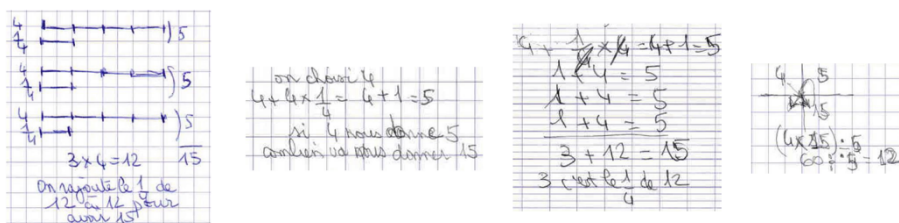 4
1/4
) 5
4
1/4
) 5
4
1/4
) 5
3 x 4 = 12 15
On rajoute le 1/4 de
12 à 12 pour
avoir 15
on choisi 4
4 + 4 x 1/4 = 4 + 1 = 5
si 4 nous donne 5
combien va nous donner 15
4 + 1/4 x 4 = 4 + 1 = 5
1 + 4 = 5
1 + 4 = 5
1 + 4 = 5
3 + 12 = 15
3 c'est le 1/4 de 12
4 5
15
(4x15) : 5
60 : 5 = 12